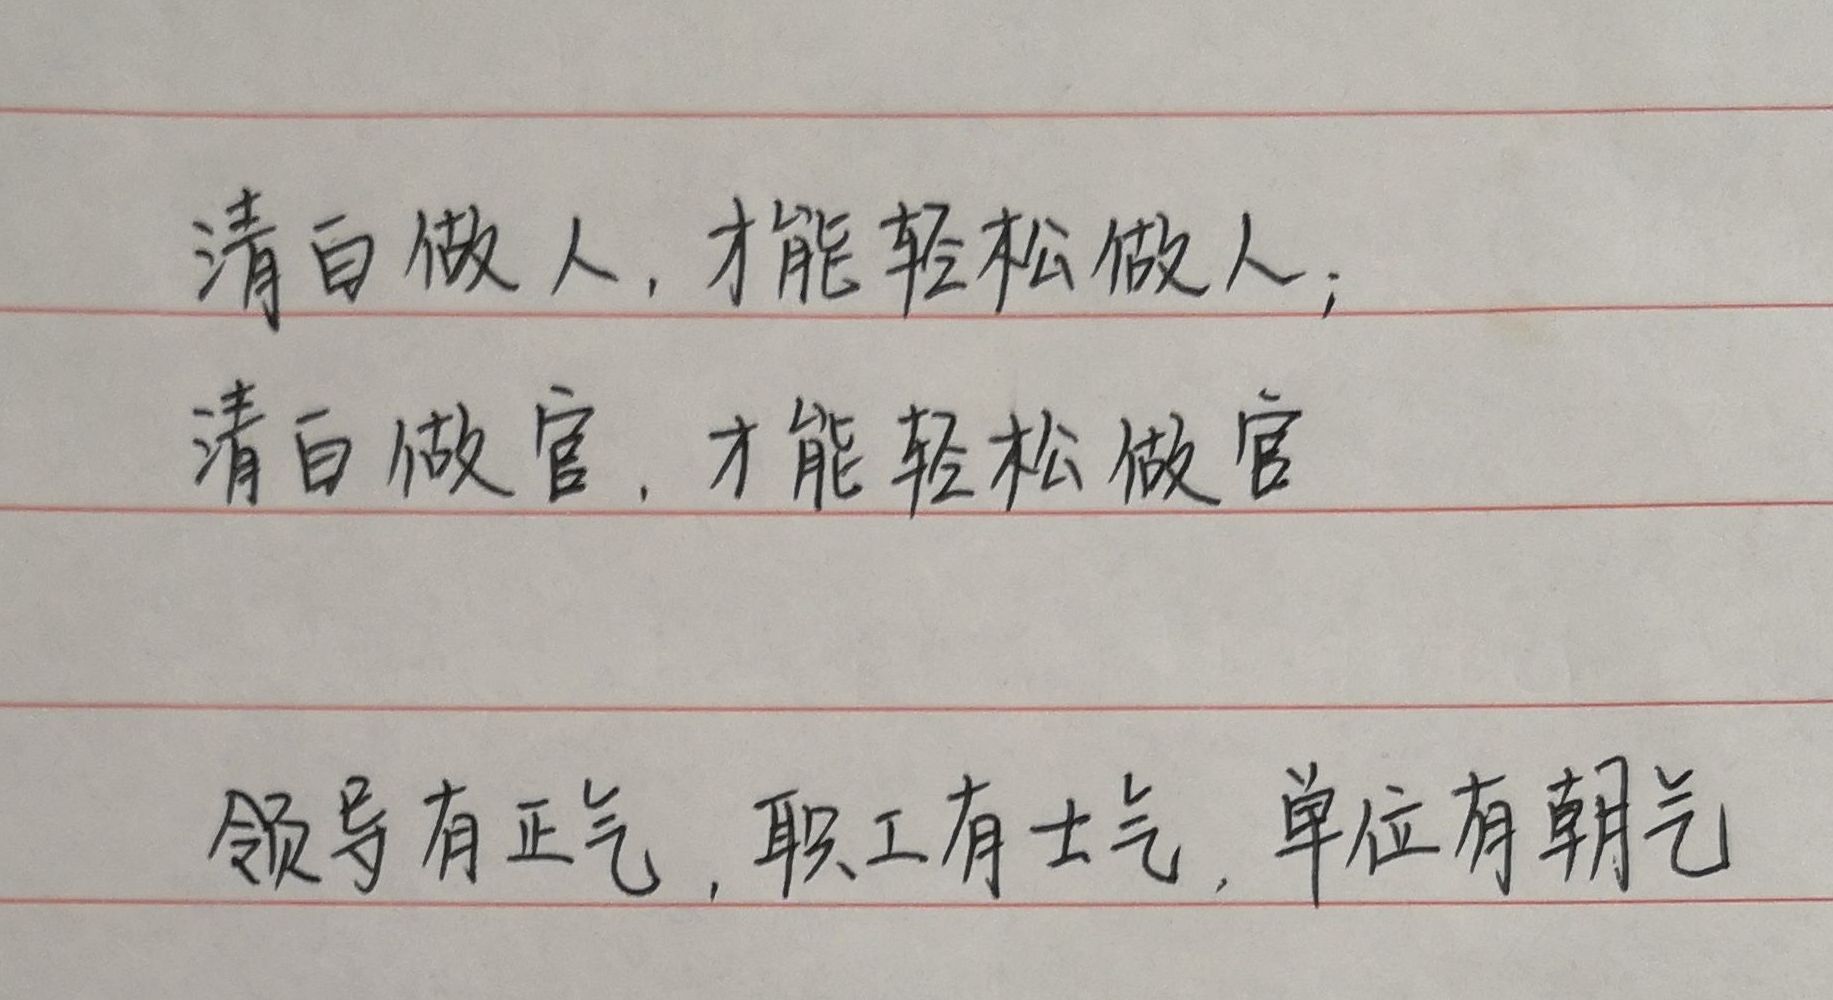 清白做人，才能轻松做人；
清白做官，才能轻松做官
领导有正气，职工有士气，单位有朝气